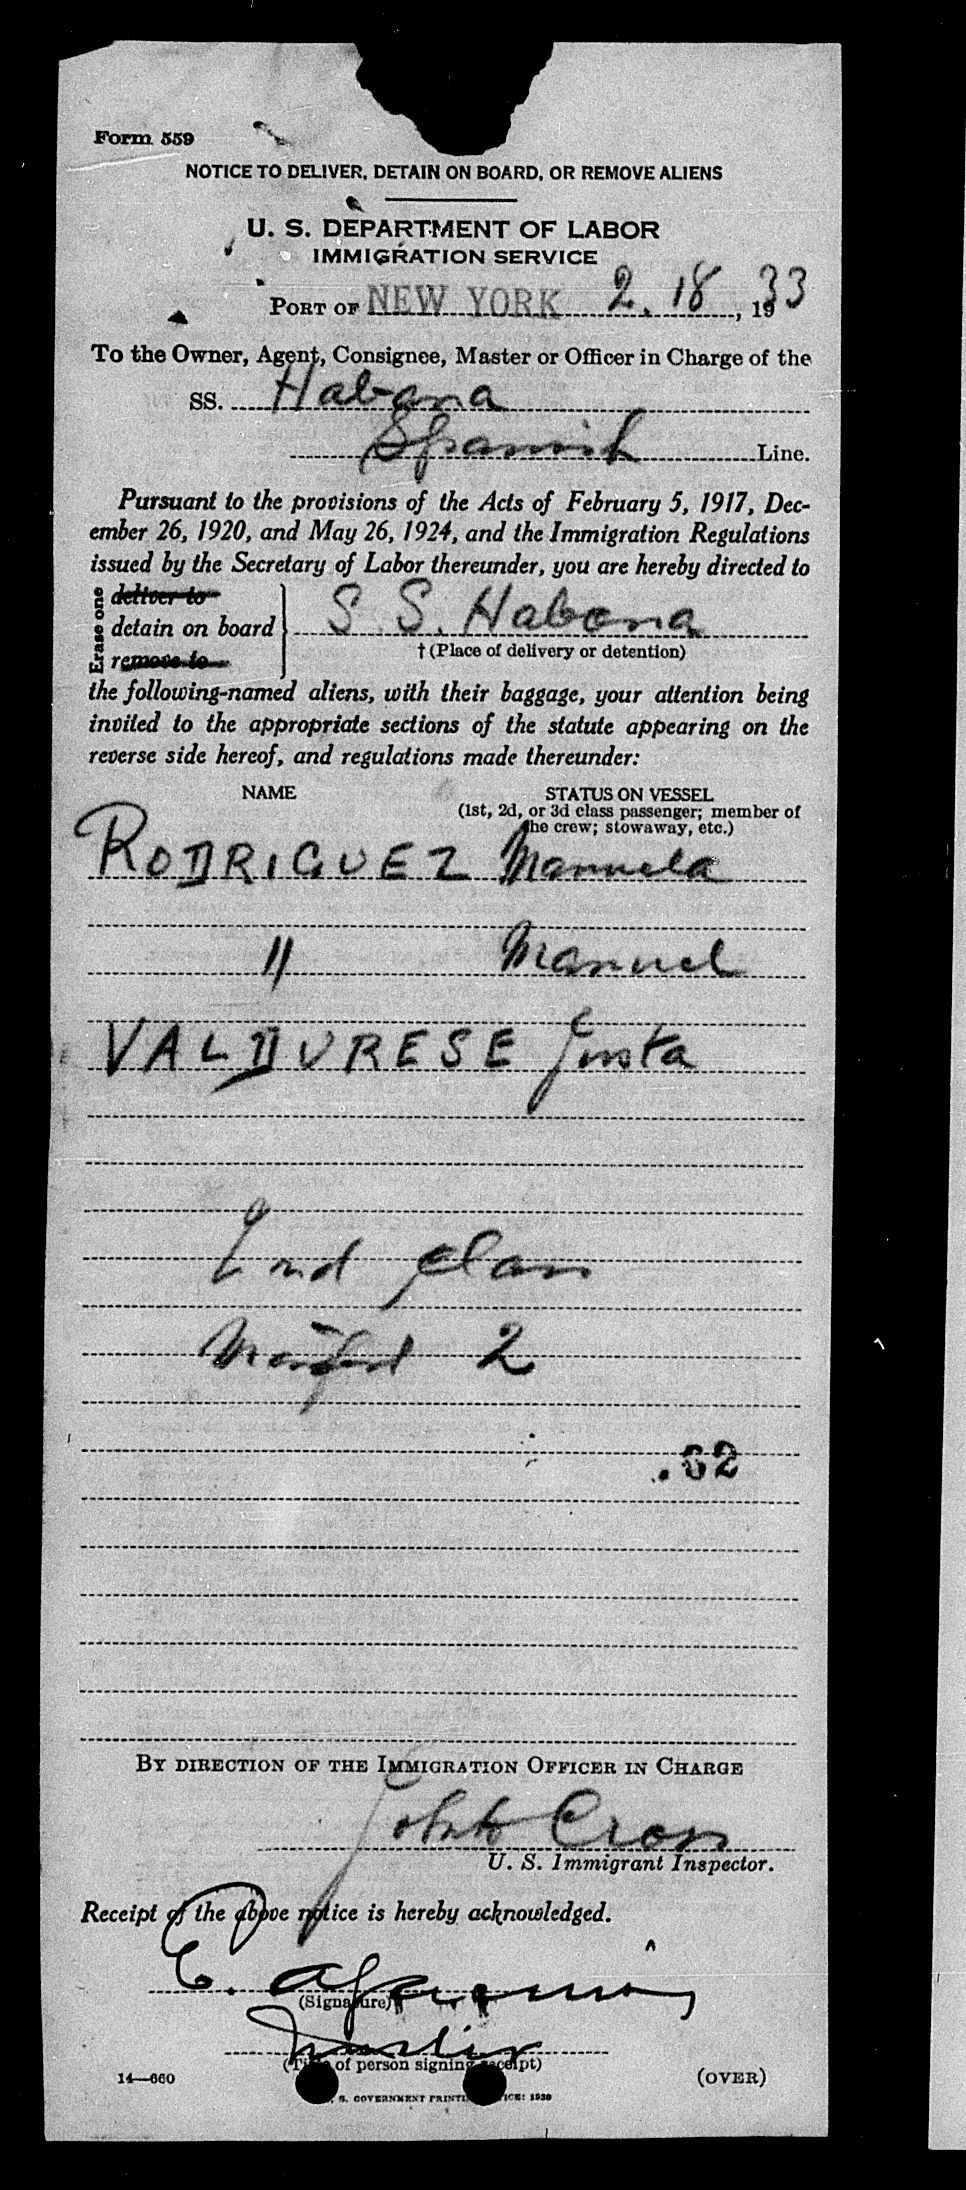 Form 559
NOTICE TO DELIVER, DETAIN ON BOARD, OR REMOVE ALIENS
U. S. DEPARTMENT OF LABOR
IMMIGRATION SERVICE
PORT OF NEW YORK 2. 18, 1933
To the Owner, Agent, Consignee, Master or Officer in Charge of the
SS. Habana
Spanish Line.
Pursuant to the provisions of the Acts of February 5, 1917, Dec-
ember 26, 1920, and May 26, 1924, and the Immigration Regulations
issued by the Secretary of Labor thereunder, you are hereby directed to
Erase one
deliver to
detain on board S. S. Habana
remove to
† (Place of delivery or detention)
the following-named aliens, with their baggage, your attention being
invited to the appropriate sections of the statute appearing on the
reverse side hereof, and regulations made thereunder:
NAME STATUS ON VESSEL
(1st, 2d, or 3d class passenger; member of
the crew; stowaway, etc.)
RODRIGUEZ Manuela
" Manuel
VALDURESE Justa
2nd class
Manifest 2
.62
BY DIRECTION OF THE IMMIGRATION OFFICER IN CHARGE
Cross
U. S. Immigrant Inspector.
Receipt of the above notice is hereby acknowledged.
E.
(Signature)
(Title of person signing receipt)
14—660 (OVER)
U. S. GOVERNMENT PRINTING OFFICE: 1930